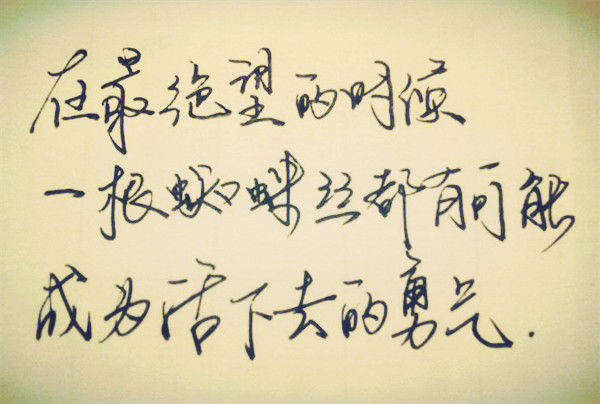 在最绝望的时候
一根蜘蛛丝都有可能
成为活下去的勇气.